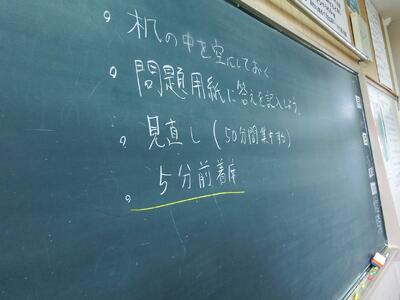 机の中を空にしておく
問題用紙に答えを記入しよう。
見直し(50分間集中する)
5分前着席